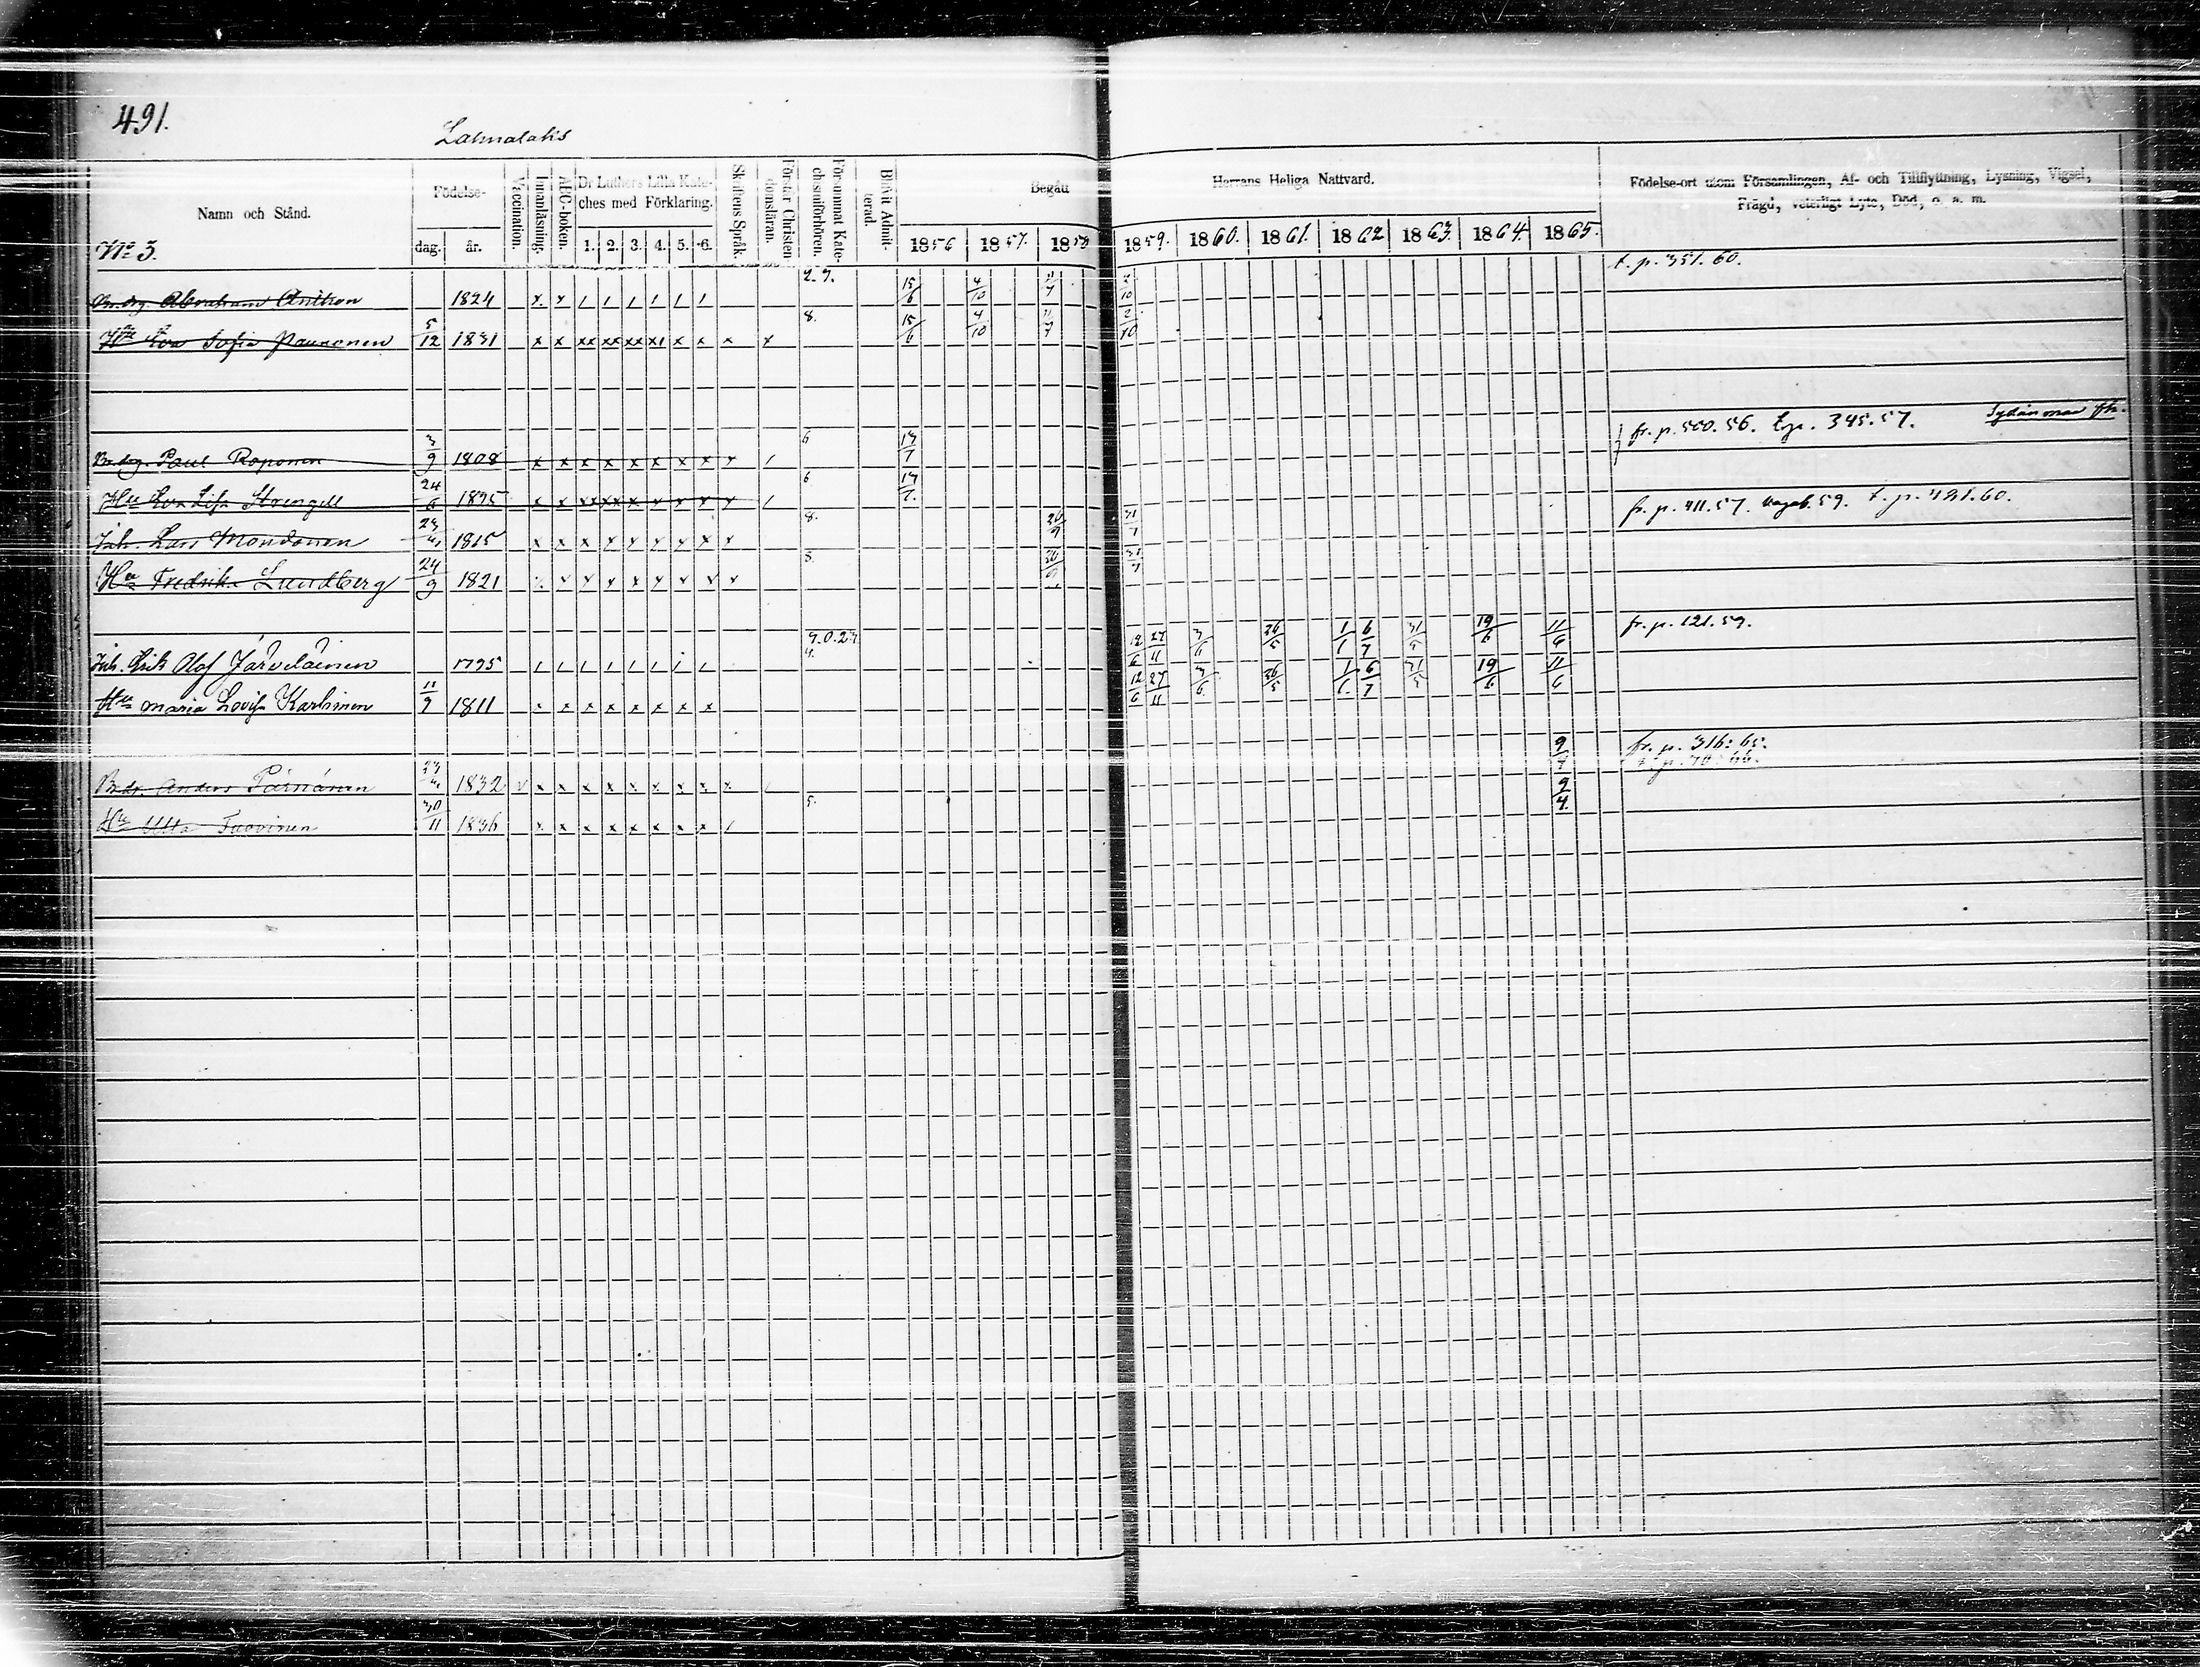 491.
Lahnalaks
Namn och Stånd.
No 3.
Födelse-
dag. år.
Vaccination.
Innanläsning.
ABC-boken.
Dr Luthers Lilla Kate-
ches med Förklaring.
1. 2. 3. 4. 5. 6.
Skriftens Språk.
Förstår Christen
domsläran.
Försummat Kate-
chismiförhören.
Blivit Admit-
terad.
Begått
Herrans Heliga Nattvard.
1856 1857. 1858 1859. 1860. 1861. 1862 1863. 1864. 1865.
Födelse-ort utom Församlingen, Af- och Tillflyttning, Lysning, Vigsel,
Frägd, veterligt Lyte, Död, o. a. m.
Abraham Anthon 1824 x x / / / / / / 15/6 4/10 2/10 t. p. 351. 60.
Hu Eva Sofia Paunonen 5/12 1831 x x xx xx xx x x x x 8. 15/6 4/10 11/7 2/10
Paul Roponen 3/9 1808 x x x x x x x x x / 6 17/7 fr. p. 500. 56. t. p. 345. 57.
Hu Eva Lisa Strengell 24/6 1825 x x x x x x x x x / 6 17/7.
Inh. Lars Mondonen 23/4 1815 x x x x x x x x x 8. 26/9 31/7 fr. p. 411. 57. 59. t. p. 481. 60.
Hu Fredrika Lundberg 24/9 1821 x x x x x x x x x 8. 26/9 31/7
Inh. Erik Olof Järveläinen 1795 / / / / / / / / 12/6 27/11 3/6 26/5 1/1 6/7 31/5 19/6 11/6 fr. p. 121. 59.
Hu Maria Lovisa Karhinen 11/9 1811 x x x x x x x x 12/6 27/11 3/6 26/5 1/1 6/7 31/5 19/6 11/6
Anders Pärnänen 23/4 1832 v x x x x x x x x x 9/4 fr. p. 316: 65.
t. p. 70: 66.
Hu Ulla Tuovinen 30/11 1836 x x x x x x x x / 5. 9/4